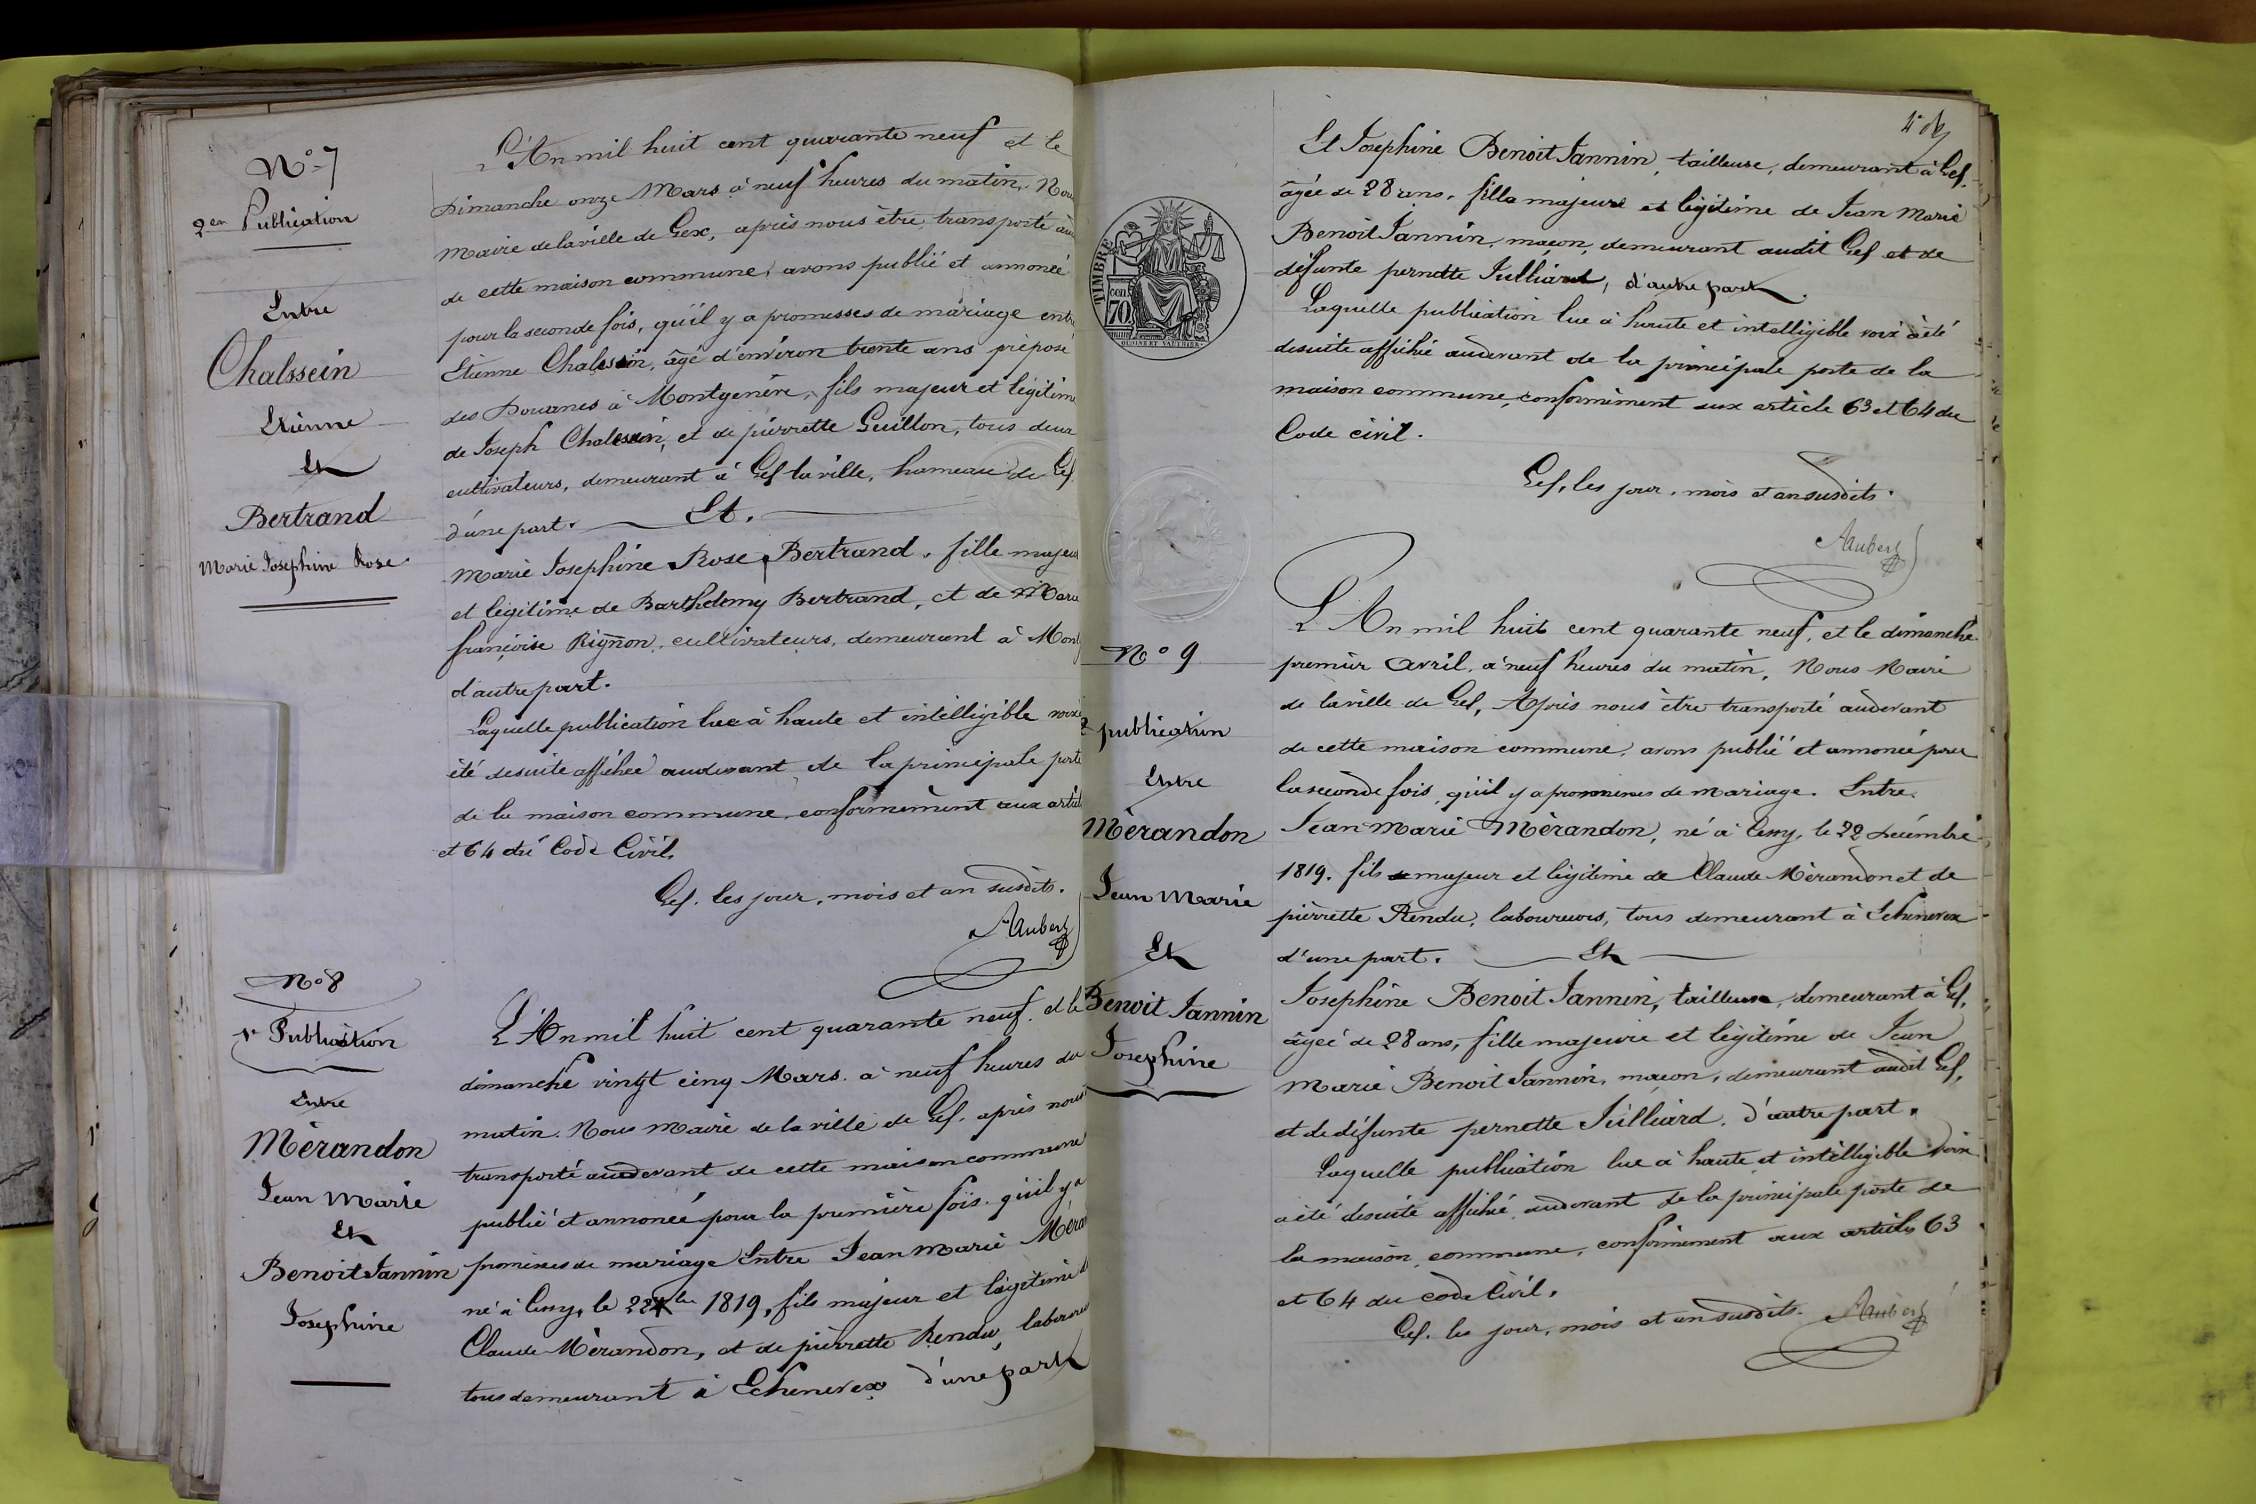 N° 7
2en Publication
Entre
Chalssein
Etienne
Et
Bertrand
Marie Josephine Rose
L'An mil huit cent quarante neuf et le
Dimanche onze Mars à neuf heures du matin, Nous
Maire de la ville de Gex, après nous être transporté
de cette maison commune, avons publié et annoncé
pour la seconde fois, qu'il y a promesses de mariage entre
Etienne Chalssein, âgé d'environ trente ans préposé
des Douanes à Montgenère, fils majeur et légitime
de Joseph Chalssein, et de pierrette Guillon, tous deux
cultivateurs, demeurant à Gex la ville, hameau de Gex
d'une part. Et.
Marie Josephine Rose Bertrand, fille majeu
et légitime de Barthelemy Bertrand, et de Marie
françoise Rignon, cultivateurs, demeurant à Mont
d'autre part.
Laquelle publication lue à haute et intelligible voix
été desuite affichée audevant de la principale porte
de la maison commune, conformément aux artic
et 64 du Code Civil,
Gex, les jour, mois et an susdits.
Aubert
N° 8
1r Publication
Entre
Mèrandon
Jean Marie
Et
Benoit Jannin
Josephine
L'An mil huit cent quarante neuf, et le
dimanche vingt cinq Mars à neuf heures du
matin. Nous Maire de la ville de Gex, après nous
transporté audevant de cette maison commune
publié et annoncé pour la première fois, qu'il y a
promesses de mariage Entre Jean Marie Méran
né à Cessy, le 22 Xbre 1819, fils majeur et légitime de
Claude Mèrandon, et de pierrette Rendu, laboureu
tous demeurant à Echenevex d'une part
Et Josephine Benoit Jannin, tailleuse, demeurant à Gex,
âgée de 28 ans, fille majeure et légitime de Jean Marie
Benoit Jannin, maçon, demeurant audit Gex et de
défunte pernette Julliard, d'autre part.
Laquelle publication lue à haute et intelligible voix à été
desuite affichée audevant de la principale porte de la
maison commune, conformément aux article 63 et 64 du
Code civil.
Gex, les jour, mois et an susdits.
Aubert
TIMBRE
cen.
70
N° 9
2 publication
Entre
Mèrandon
Jean Marie
Et
Benoit Jannin
Josephine
L'An mil huit cent quarante neuf, et le dimanche
premier Avril, à neuf heures du matin, Nous Maire
de la ville de Gex, Après nous être transporté audevant
de cette maison commune, avons publié et annoncé pour
la seconde fois, qu'il y a promesses de mariage. Entre.
Jean Marie Mèrandon, né à Cessy, le 22 decembre
1819. fils majeur et légitime de Claude Mèrandon et de
pierrette Rendu, laboureurs, tous demeurant à Echenevex
d'une part. Et
Josephine Benoit Jannin, tailleuse, demeurant à Gex,
âgée de 28 ans, fille majeure et légitime de Jean
Marie Benoit Jannin, maçon, demeurant audit Gex,
et de défunte pernette Julliard, d'autre part.
Laquelle publication lue à haute et intelligible voix
a été desuite affiché audevant de la principale porte de
la maison commune, conformément aux articles 63
et 64 du code Civil.
Gex, les jour, mois et an susdits. Aubert